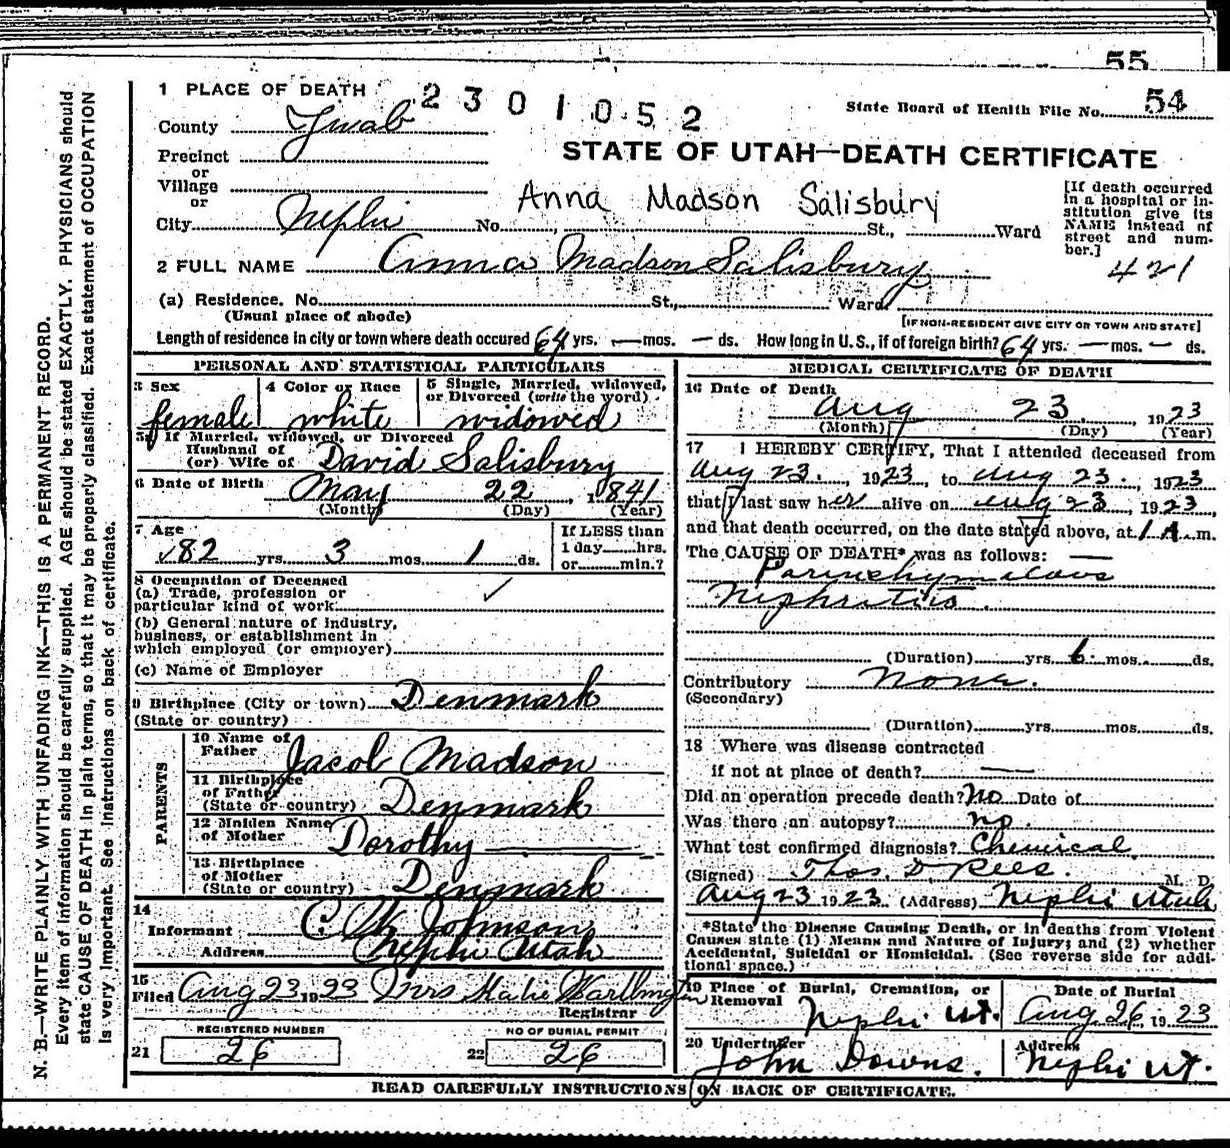 55
1 PLACE OF DEATH 2301052
State Board of Health File No. 54
County Juab
STATE OF UTAH—DEATH CERTIFICATE
Precinct
or
Village
or
City Nephi No. St., Ward
Anna Madson Salisbury
[If death occurred in a hospital or institution give its NAME instead of street and number.]
421
2 FULL NAME Anna Madson Salisbury
(a) Residence. No. St., Ward
(Usual place of abode)
[IF NON-RESIDENT GIVE CITY OR TOWN AND STATE]
Length of residence in city or town where death occured 64 yrs. — mos. — ds. How long in U.S., if of foreign birth? 64 yrs. — mos. — ds.
PERSONAL AND STATISTICAL PARTICULARS
3 Sex
female
4 Color or Race
white
5 Single, Married, widowed,
or Divorced (write the word)
widowed
5a If Married, widowed, or Divorced
Husband of
(or) Wife of David Salisbury
6 Date of Birth May 22, 1841
(Month) (Day) (Year)
7 Age
82 yrs. 3 mos. 1 ds.
If LESS than
1 day.....hrs.
or.....min.?
8 Occupation of Deceased
(a) Trade, profession or
particular kind of work
(b) General nature of industry,
business, or establishment in
which employed (or employer)
(c) Name of Employer
9 Birthplace (City or town) Denmark
(State or country)
PARENTS
10 Name of
Father Jacob Madson
11 Birthplace
of Father
(State or country) Denmark
12 Maiden Name
of Mother Dorothy
13 Birthplace
of Mother
(State or country) Denmark
14
Informant C. W. Johnson
Address Nephi Utah
15
Filed Aug 23 1923 Mrs Katie
Registrar
REGISTERED NUMBER
21 26
NO OF BURIAL PERMIT
22 26
MEDICAL CERTIFICATE OF DEATH
16 Date of Death
Aug 23, 1923
(Month) (Day) (Year)
17 I HEREBY CERTIFY, That I attended deceased from
Aug 23., 1923, to Aug 23., 1923
that I last saw her alive on Aug 23, 1923,
and that death occurred, on the date stated above, at 1 A.m.
The CAUSE OF DEATH* was as follows:
Parinchymatous
Nephrititis.
(Duration) yrs. 6 mos. ds.
Contributory None.
(Secondary)
(Duration) yrs. mos. ds.
18 Where was disease contracted
if not at place of death? —
Did an operation precede death? No Date of
Was there an autopsy? no.
What test confirmed diagnosis? Chemical
(Signed) Thos. D. Rees. M. D.
Aug 23 1923. (Address) Nephi Utah
*State the Disease Causing Death, or in deaths from Violent
Causes state (1) Means and Nature of Injury; and (2) whether
Accidental, Suicidal or Homicidal. (See reverse side for addi-
tional space.)
19 Place of Burial, Cremation, or
Removal
Nephi Ut.
Date of Burial
Aug 26, 1923
20 Undertaker
John Downs.
Address
Nephi Ut.
READ CAREFULLY INSTRUCTIONS ON BACK OF CERTIFICATE.
N. B.—WRITE PLAINLY WITH UNFADING INK—THIS IS A PERMANENT RECORD.
Every item of information should be carefully supplied. AGE should be stated EXACTLY. PHYSICIANS should
state CAUSE OF DEATH in plain terms, so that it may be properly classified. Exact statement of OCCUPATION
is very important. See instructions on back of certificate.